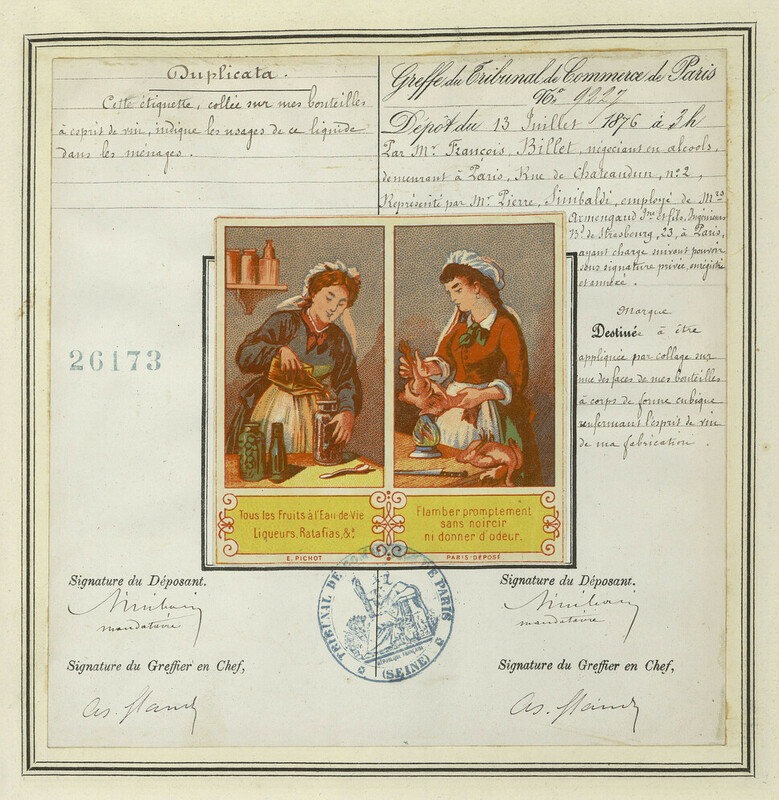 Duplicata.
Cette étiquette, collée sur mes bouteilles
à esprit de vin, indique les usages de ce liquide
dans les ménages.
26173
Greffe du Tribunal de Commerce de Paris
No. 9227
Dépôt du 13 Juillet 1876 à 3h
Par Mr. François, Billet, négociant en alcools,
demeurant à Paris, Rue de Chateaudun, no. 2,
Représenté par Mr. Pierre, Sinibaldi, employé de Mrs
Armengaud Jne. et fils, Ingénieurs
Bd. de Strasbourg, 23, à Paris,
ayant charge suivant pouvoir
sous signature privée, enregistré
et annexé.
Marque
Destinée à être
appliquée par collage sur
une des faces de mes bouteilles
à corps de forme cubique
renfermant l'esprit de vin
de ma fabrication.
Tous les Fruits à l'Eau-de-Vie
Liqueurs, Ratafias, &a.
E. PICHOT
Flamber promptement
sans noircir
ni donner d'odeur.
PARIS DÉPOSÉ
TRIBUNAL DE COMMERCE DE PARIS
RÉPUBLIQUE FRANÇAISE
(SEINE)
Signature du Déposant.
mandataire
Signature du Greffier en Chef,
Signature du Déposant.
mandataire
Signature du Greffier en Chef,